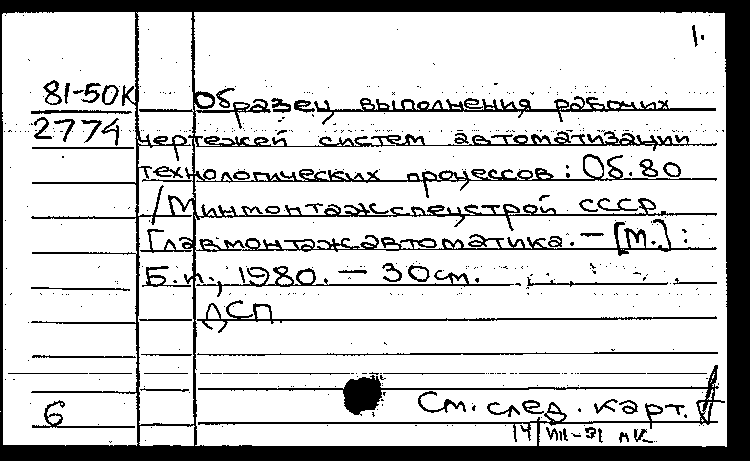 1.
81-50К
2774
Образец выполнения рабочих
чертежей систем автоматизации
технологических процессов: Об.80
/Минмонтажспецстрой СССР.
Главмонтажавтоматика. — [М.]:
Б.и., 1980. — 30 см.
ДСП.
6
См. след. карт.
14/VIII-91